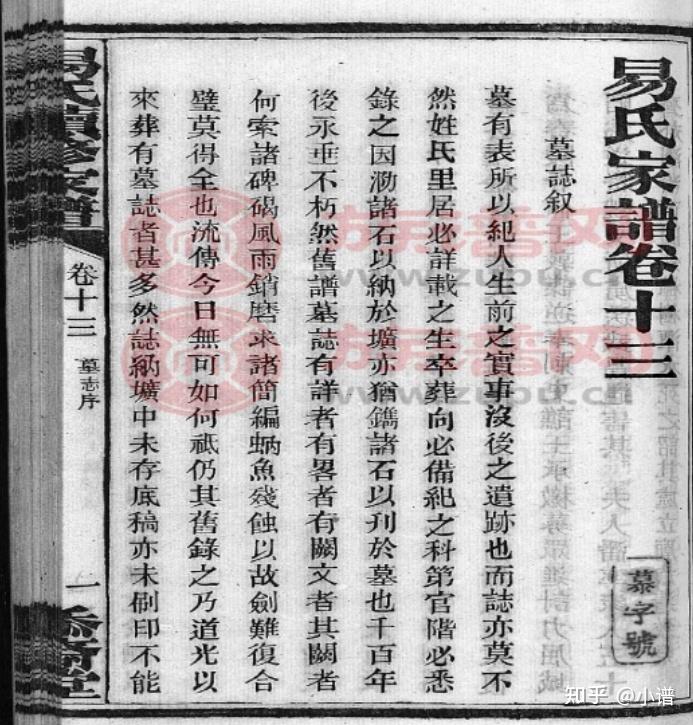 易氏家譜卷十三
慕字號
墓誌叙
墓有表所以紀人生前之實事沒後之遺跡也而誌亦莫不
然姓氏里居必詳載之生卒葬向必備紀之科第官階必悉
錄之因泐諸石以納於壙亦猶鐫諸石以刊於墓也千百年
後永垂不朽然舊譜墓誌有詳者有畧者有闕文者其闕者
何索諸碑碣風雨銷磨求諸簡編蚋魚殘蝕以故劍難復合
璧莫得全也流傳今日無可如何祗仍其舊錄之乃道光以
來葬有墓誌者甚多然誌納壙中未存底稿亦未刷印不能
易氏續修家譜
卷十三
墓志序
一
堂
族譜网
www.zupu.cn
族譜网
www.zupu.cn
知乎 @小谱